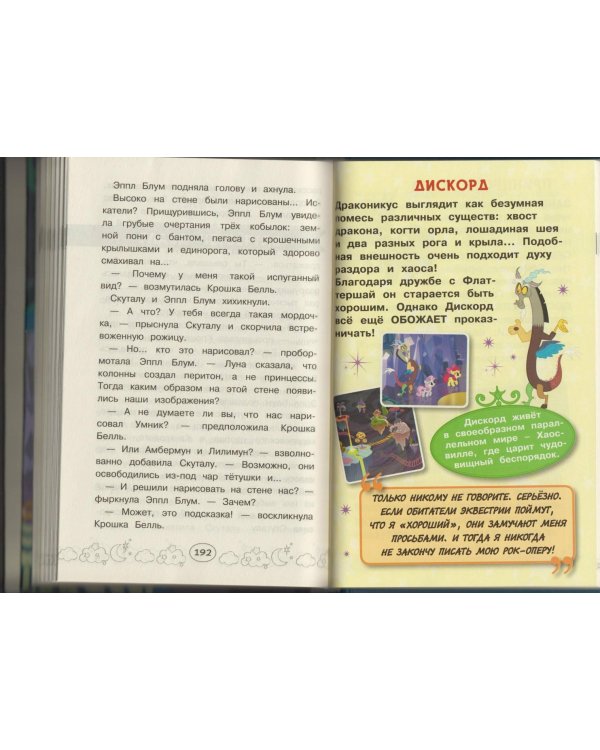 Эппл Блум подняла голову и ахнула.
Высоко на стене были нарисованы... Ис-
катели? Прищурившись, Эппл Блум увиде-
ла грубые очертания трёх кобылок: зем-
ной пони с бантом, пегаса с крошечными
крылышками и единорога, который здорово
смахивал на...
— Почему у меня такой испуганный
вид? — возмутилась Крошка Белль.
Скуталу и Эппл Блум хихикнули.
— А что? У тебя всегда такая мордоч-
ка, — прыснула Скуталу и скорчила встре-
воженную рожицу.
— Но... кто это нарисовал? — пробор-
мотала Эппл Блум. — Луна сказала, что
колонны создал перитон, а не принцессы.
Тогда каким образом на этой стене появи-
лись наши изображения?
— А не думаете ли вы, что нас нари-
совал Умник? — предположила Крошка
Белль.
— Или Амбермун и Лилимун? — взволно-
ванно добавила Скуталу. — Возможно, они
освободились из-под чар тётушки и...
— И решили нарисовать на стене нас? —
фыркнула Эппл Блум. — Зачем?
— Может, это подсказка! — воскликнула
Крошка Белль.
192
ДИСКОРД
Драконикус выглядит как безумная
помесь различных существ: хвост
дракона, когти орла, лошадиная шея
и два разных рога и крыла... Подоб-
ная внешность очень подходит духу
раздора и хаоса!
Благодаря дружбе с Флат-
тершай он старается быть
хорошим. Однако Дискорд
всё ещё ОБОЖАЕТ проказ-
ничать!
Дискорд живёт
в своеобразном парал-
лельном мире – Хаос-
вилле, где царит чудо-
вищный беспорядок.
“ТОЛЬКО НИКОМУ НЕ ГОВОРИТЕ. СЕРЬЁЗНО.
ЕСЛИ ОБИТАТЕЛИ ЭКВЕСТРИИ ПОЙМУТ,
ЧТО Я «ХОРОШИЙ», ОНИ ЗАМУЧАЮТ МЕНЯ
ПРОСЬБАМИ. И ТОГДА Я НИКОГДА
НЕ ЗАКОНЧУ ПИСАТЬ МОЮ РОК-ОПЕРУ!”